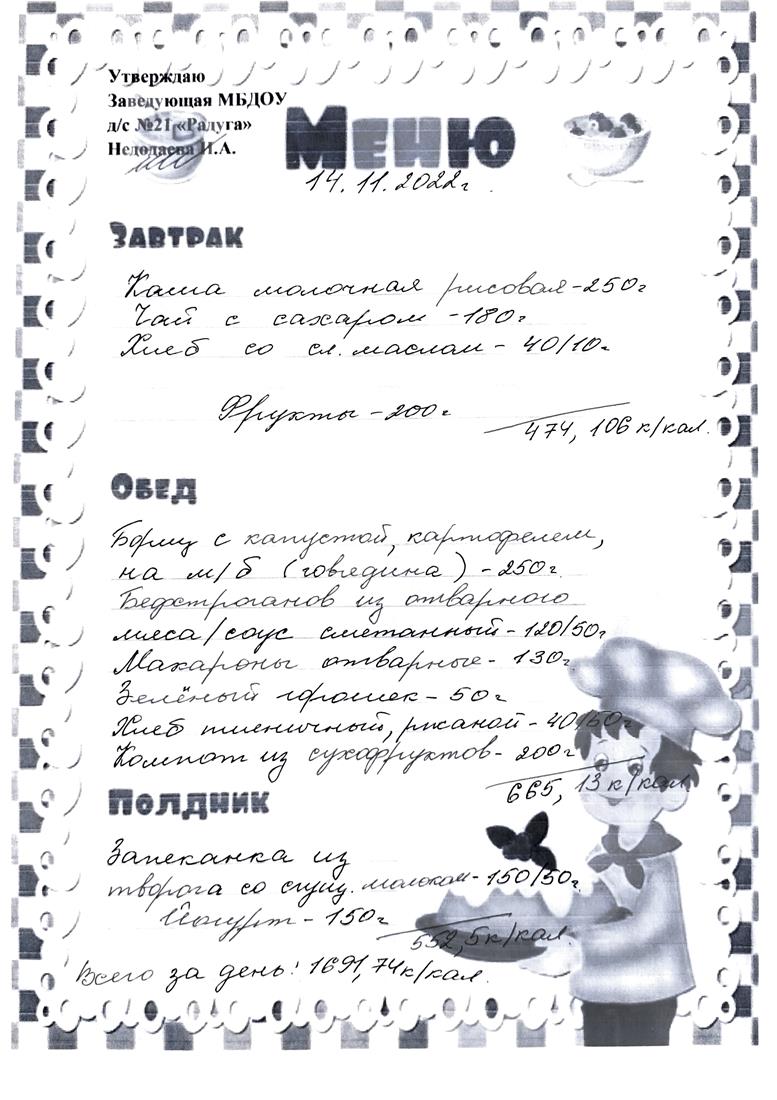 Утверждаю
Заведующая МБДОУ
д/с №21 «Радуга»
Недодаева И.А.
Меню
14.11.2022г.
Завтрак
Каша молочная рисовая - 250г
Чай с сахаром - 180г
Хлеб со сл. маслом - 40/10г
Фрукты - 200г
474, 106 к/кал.
Обед
Борщ с капустой, картофелем,
на м/б (говядина) - 250г.
Бефстроганов из отварного
мяса/соус сметанный - 120/50г
Макароны отварные - 130г
Зелёный горошек - 50г
Хлеб пшеничный, ржаной - 40/50г
Компот из сухофруктов - 200г
665, 13 к/кал.
Полдник
Запеканка из
творога со сгущ. молоком - 150/50г
Йогурт - 150г
552,5к/кал.
Всего за день: 1691,74к/кал.